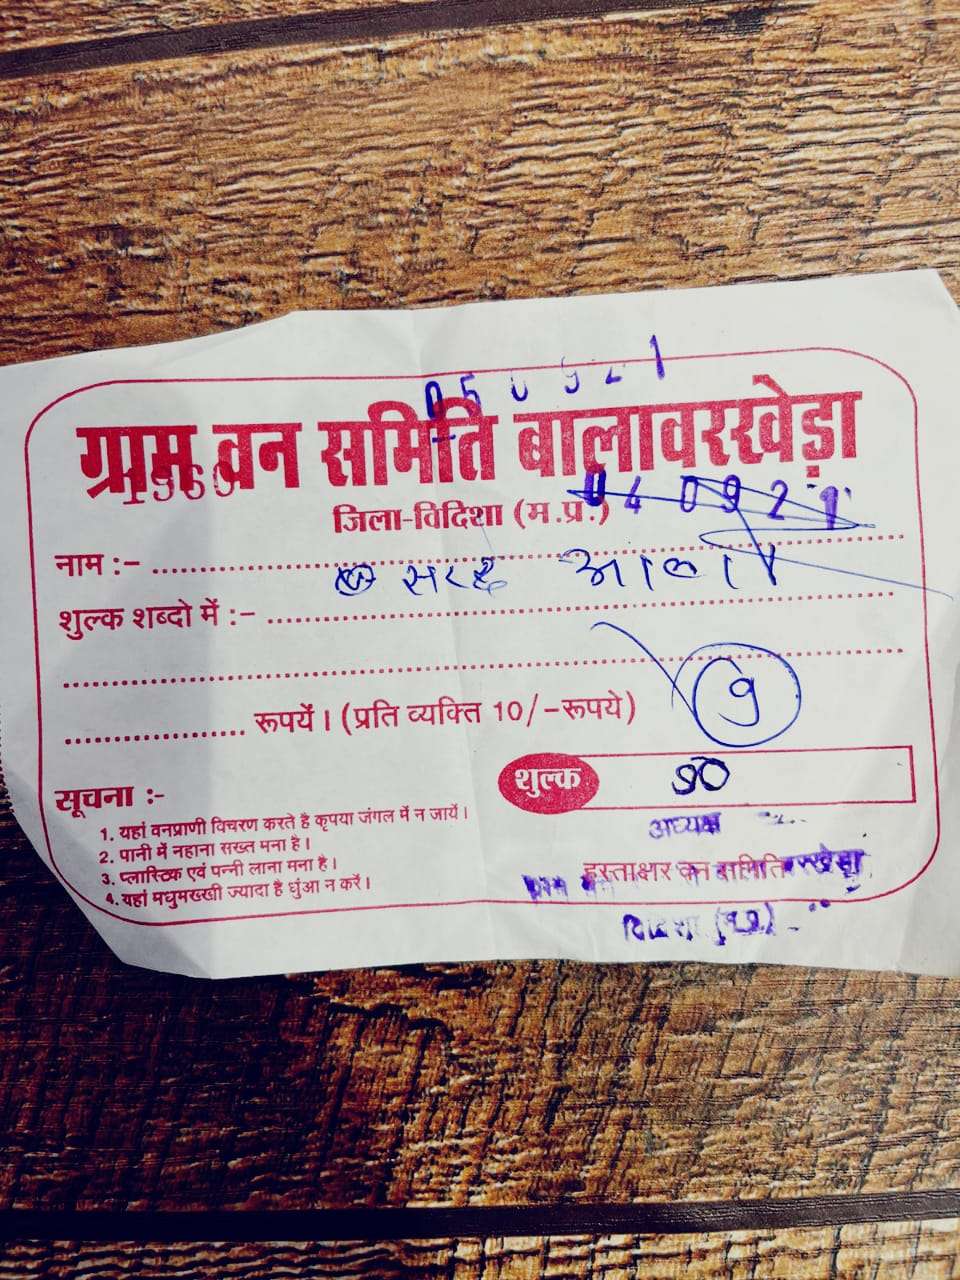 ग्राम वन समिति बालावरखेड़ा
040921
जिला-विदिशा (म.प्र.)
नाम :-
शुल्क शब्दो में :-
रूपयें । (प्रति व्यक्ति 10/-रूपये)
9
शुल्क 90
सूचना :-
1. यहां वनप्राणी विचरण करते है कृपया जंगल में न जायें ।
2. पानी में नहाना सख्त मना है ।
3. प्लास्टिक एवं पन्नी लाना मना है ।
4. यहां मधुमख्खी ज्यादा है धुंआ न करें ।
अध्यक्ष
हस्ताक्षर वन समिति